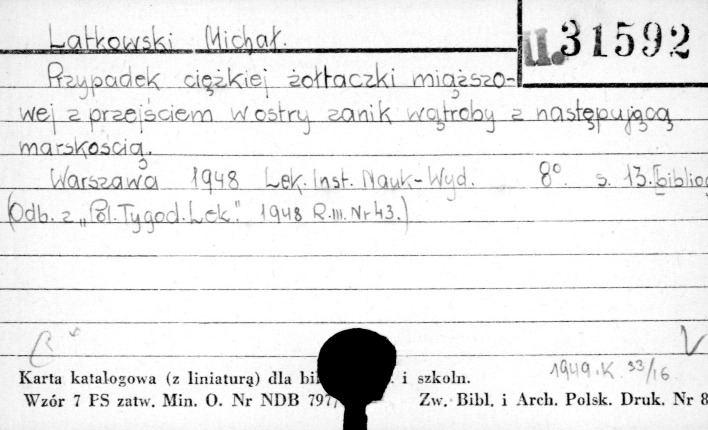 Latkowski Michał.
U.31592
Przypadek ciężkiej żółtaczki miąższo-
wej z przejściem w ostry zanik wątroby z następującą
marskością.
Warszawa 1948 Lek. Inst. Nauk-Wyd. 8°. s. 13. bibliog
(Odb. z „Pol. Tygod. Lek." 1948 R.III. Nr 43.)
1949. K. 33/16
Karta katalogowa (z liniaturą) dla i szkoln.
Wzór 7 PS zatw. Min. O. Nr NDB 797/ Zw. Bibl. i Arch. Polsk. Druk. Nr 8